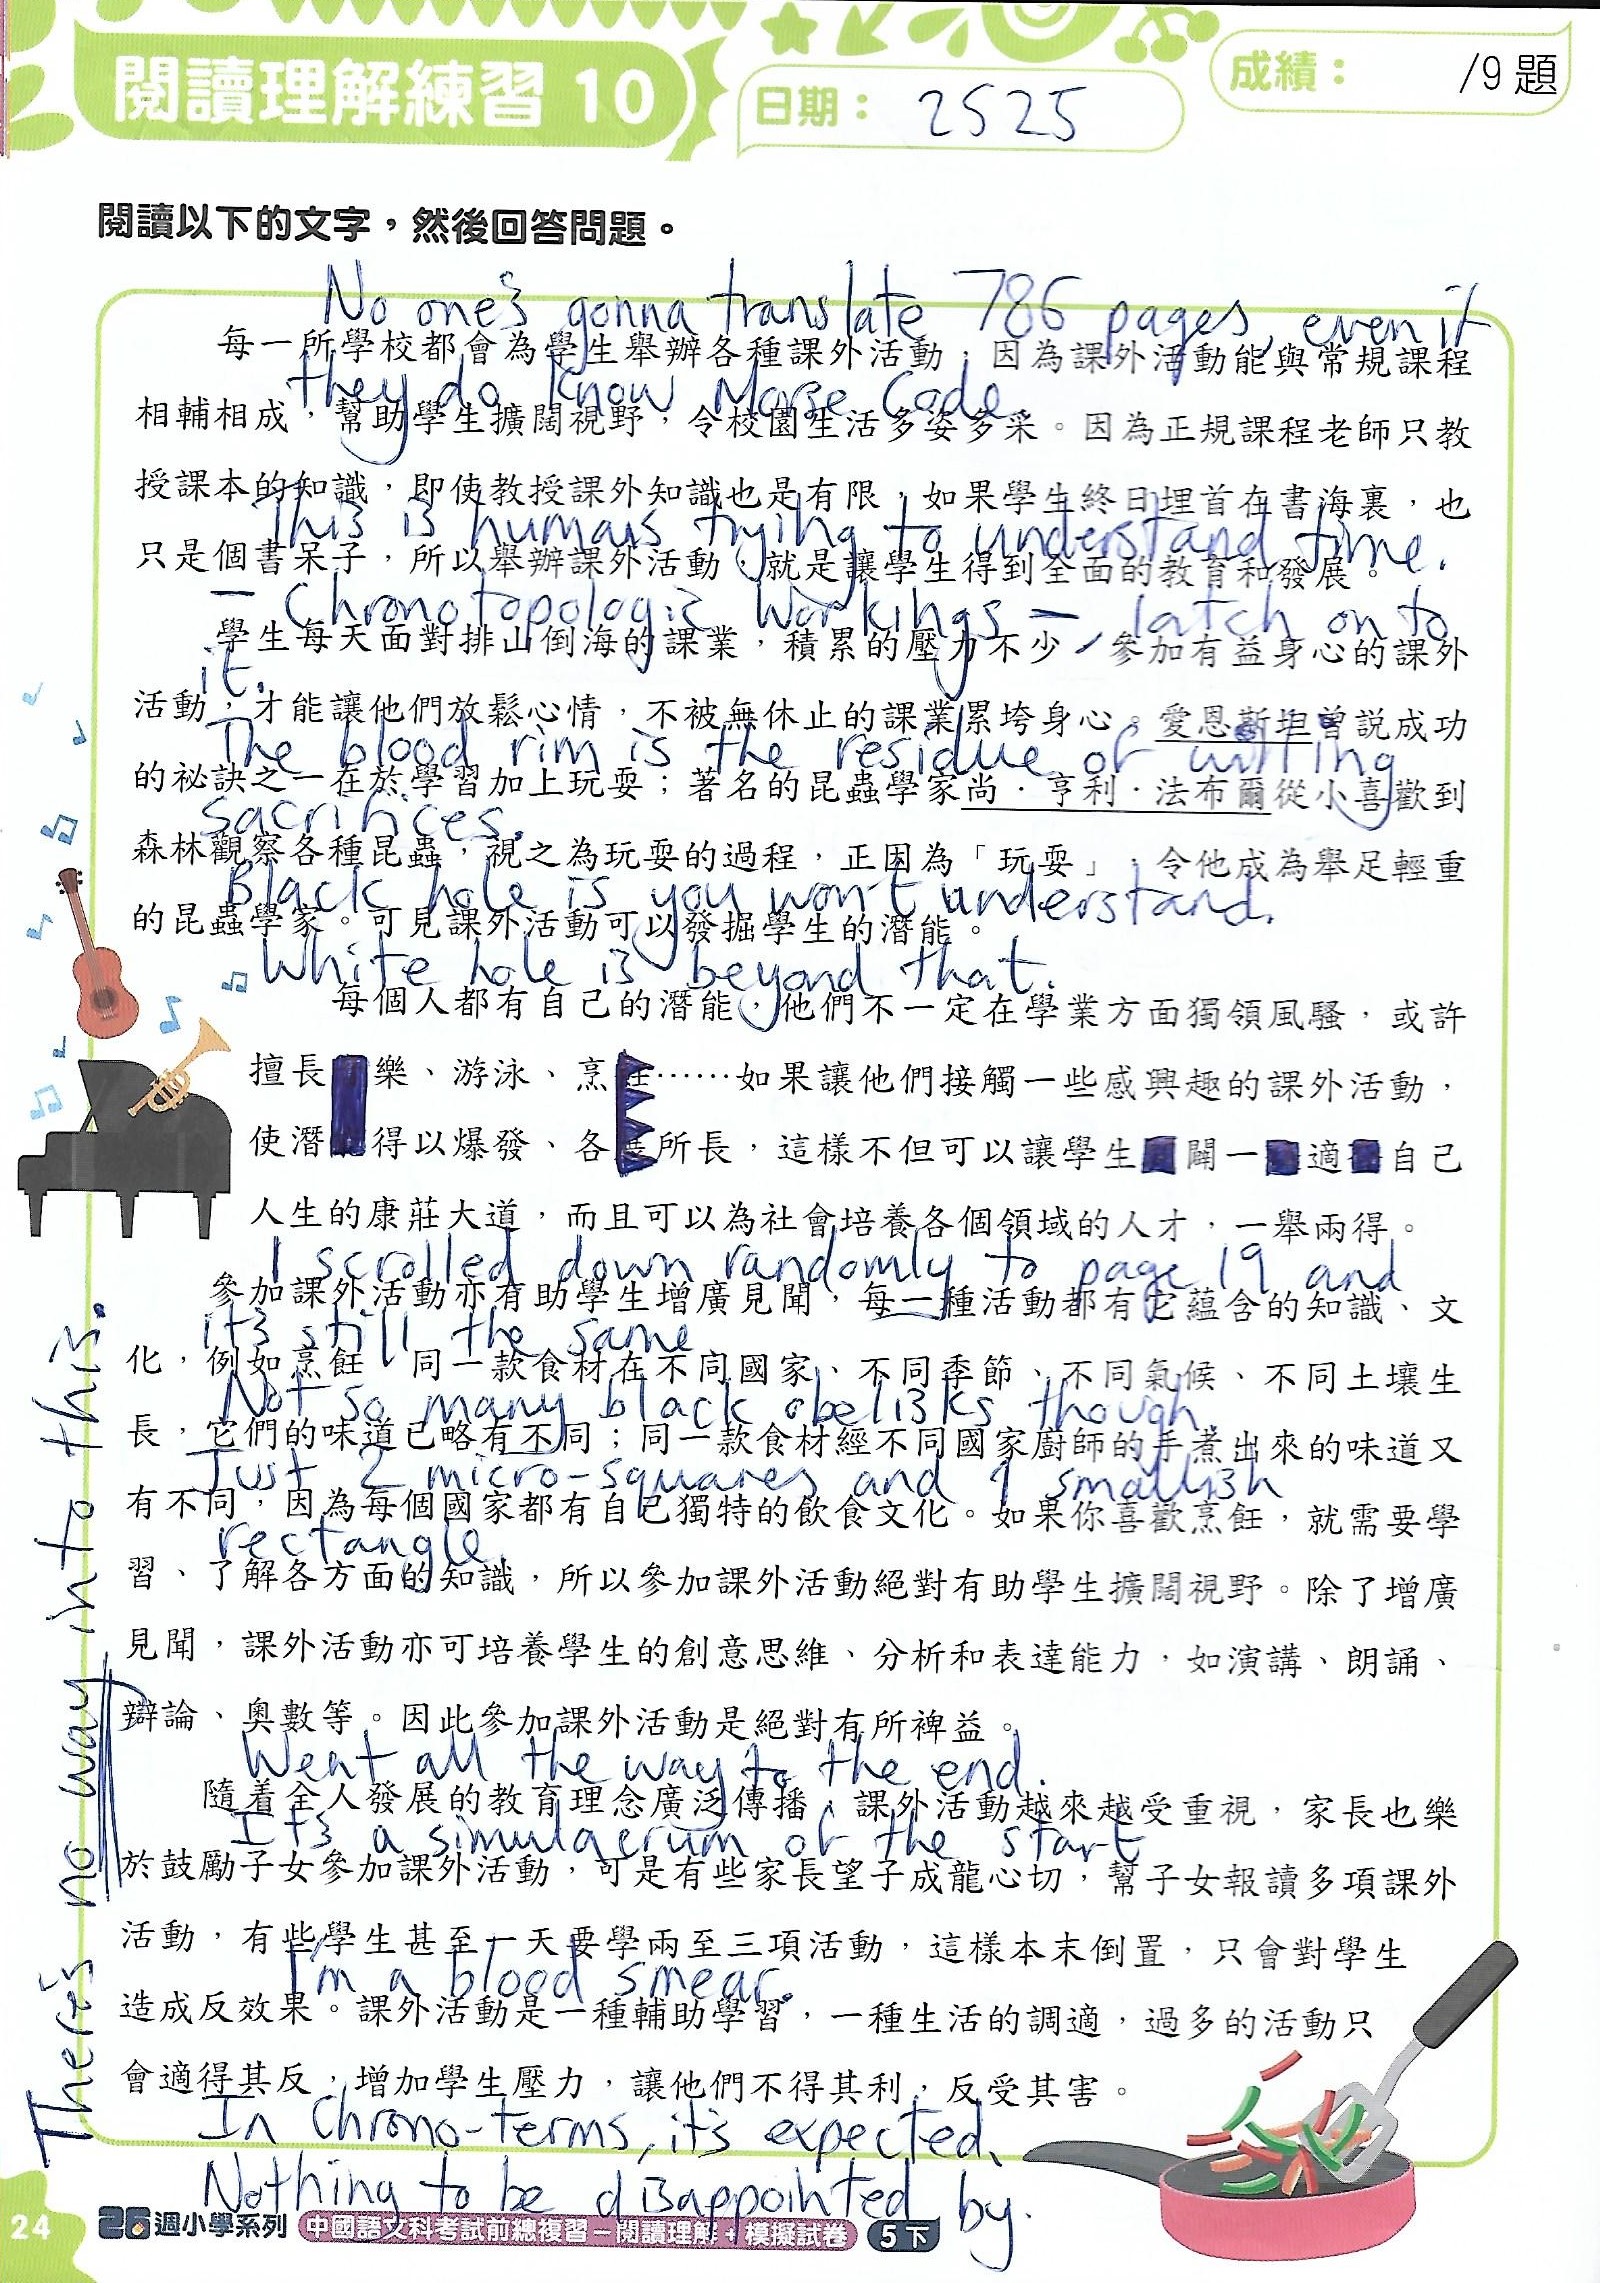 閱讀理解練習 10
日期： 2525
成績： /9 題
閱讀以下的文字，然後回答問題。
No one's gonna translate 786 pages, even if
每一所學校都會為學生舉辦各種課外活動，因為課外活動能與常規課程
they do know Morse Code.
相輔相成，幫助學生擴闊視野，令校園生活多姿多采。因為正規課程老師只教
授課本的知識，即使教授課外知識也是有限，如果學生終日埋首在書海裏，也
This is humans trying to understand time.
只是個書呆子，所以舉辦課外活動，就是讓學生得到全面的教育和發展。
— Chronotopologic Workings — latch on to
學生每天面對排山倒海的課業，積累的壓力不少，參加有益身心的課外
it.
活動，才能讓他們放鬆心情，不被無休止的課業累垮身心。愛恩斯坦曾説成功
The blood rim is the residue of willing
的祕訣之一在於學習加上玩耍；著名的昆蟲學家尚．亨利．法布爾從小喜歡到
sacrifices.
森林觀察各種昆蟲，視之為玩耍的過程，正因為「玩耍」，令他成為舉足輕重
Black hole is you won't understand.
的昆蟲學家。可見課外活動可以發掘學生的潛能。
White hole is beyond that.
每個人都有自己的潛能，他們不一定在學業方面獨領風騷，或許
擅長樂、游泳、烹……如果讓他們接觸一些感興趣的課外活動，
使潛得以爆發、各所長，這樣不但可以讓學生闢一適自己
人生的康莊大道，而且可以為社會培養各個領域的人才，一舉兩得。
I scrolled down randomly to page 19 and
參加課外活動亦有助學生增廣見聞，每一種活動都有它蘊含的知識、文
it's still the same
化，例如烹飪，同一款食材在不同國家、不同季節、不同氣候、不同土壤生
Not so many black obelisks though.
長，它們的味道已略有不同；同一款食材經不同國家廚師的手煮出來的味道又
Just 2 micro-squares and 1 smallish
有不同，因為每個國家都有自己獨特的飲食文化。如果你喜歡烹飪，就需要學
rectangle.
習、了解各方面的知識，所以參加課外活動絕對有助學生擴闊視野。除了增廣
見聞，課外活動亦可培養學生的創意思維、分析和表達能力，如演講、朗誦、
辯論、奧數等。因此參加課外活動是絕對有所裨益。
Went all the way to the end.
隨着全人發展的教育理念廣泛傳播，課外活動越來越受重視，家長也樂
It's a simulacrum of the start
於鼓勵子女參加課外活動，可是有些家長望子成龍心切，幫子女報讀多項課外
活動，有些學生甚至一天要學兩至三項活動，這樣本末倒置，只會對學生
I'm a blood smear.
造成反效果。課外活動是一種輔助學習，一種生活的調適，過多的活動只
會適得其反，增加學生壓力，讓他們不得其利，反受其害。
In Chrono-terms, it's expected.
Nothing to be disappointed by.
There's no way into this.
24
26週小學系列 中國語文科考試前總複習－閱讀理解＋模擬試卷 5下